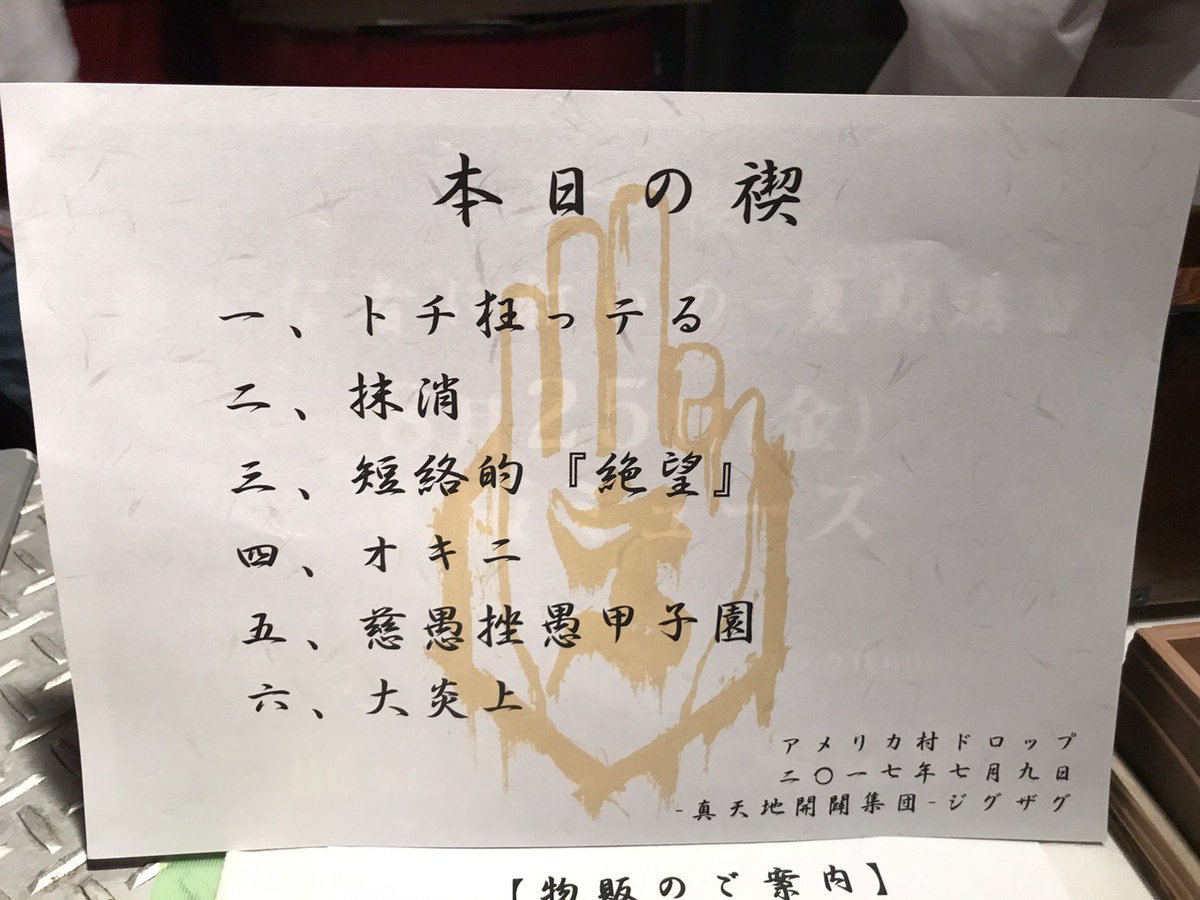 本日の禊
一、トチ枉ッテる
二、抹消
三、短絡的『絶望』
四、オキニ
五、慈愚挫愚甲子園
六、大炎上
アメリカ村ドロップ
二〇一七年七月九日
-真天地開闢集団-ジグザグ
【物販のご案内】